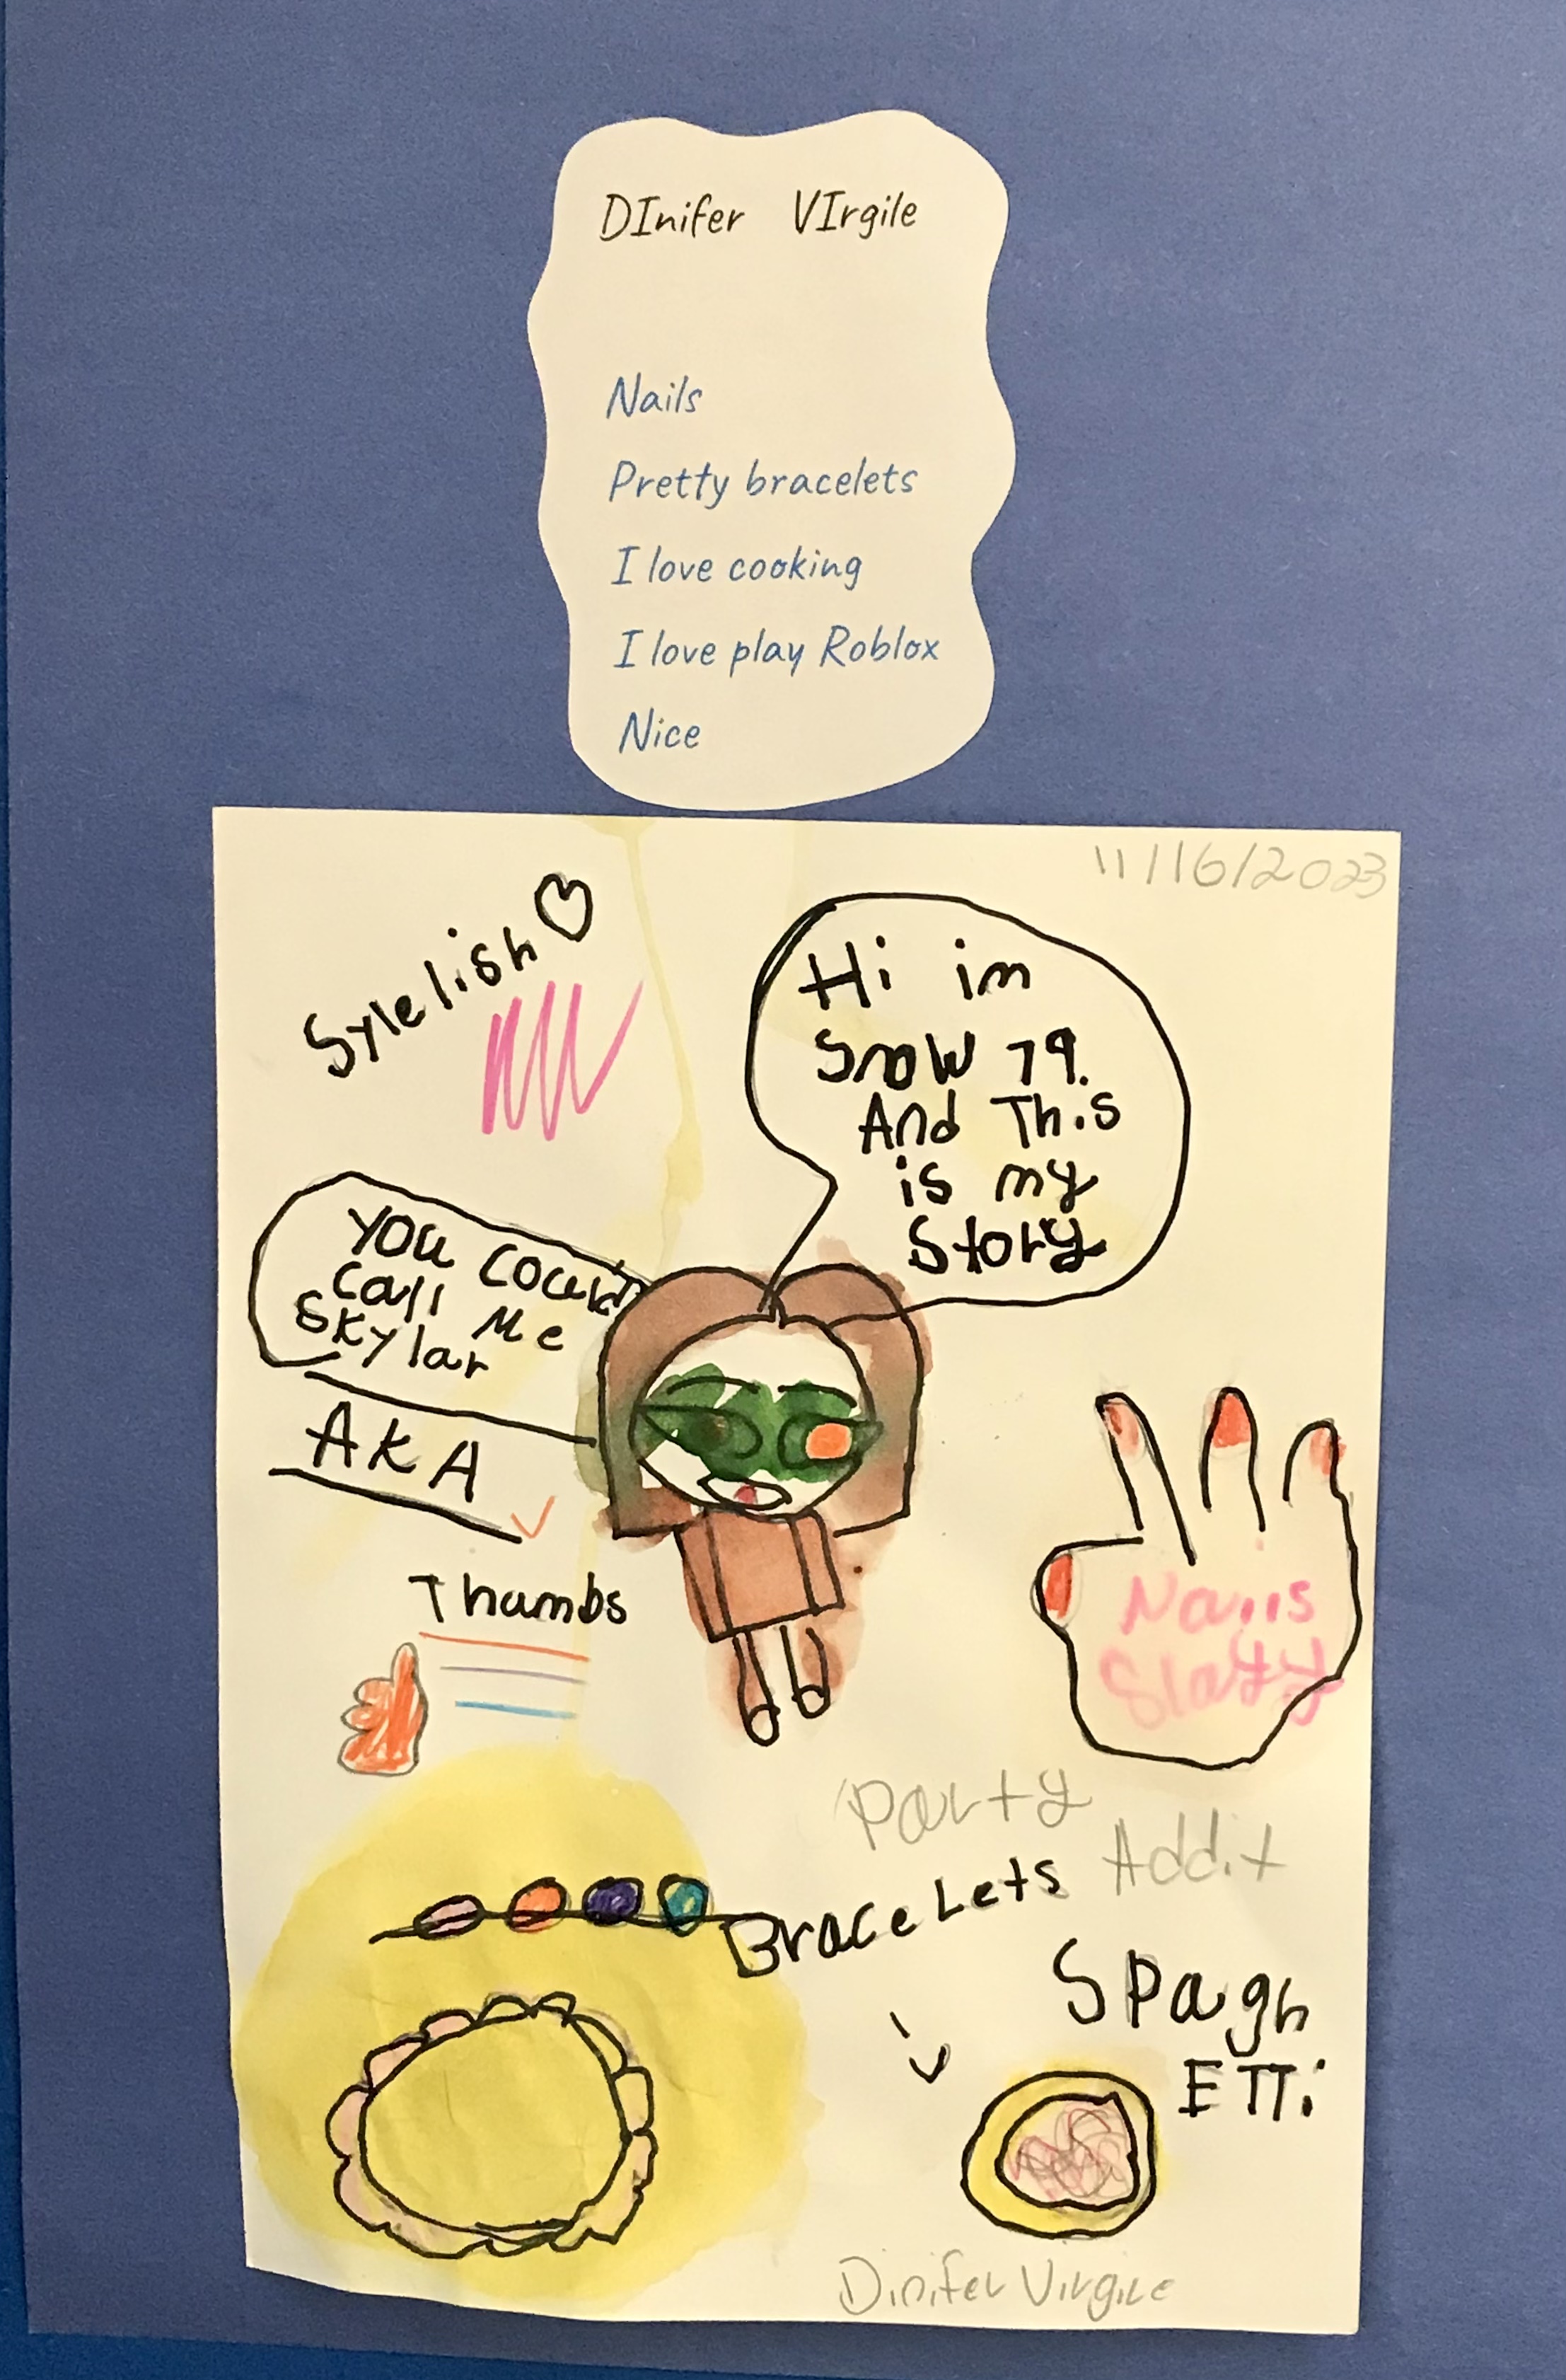 DInifer VIrgile
Nails
Pretty bracelets
I love cooking
I love play Roblox
Nice
11/16/2023
Sylelish
Hi im
Snow 79.
And This
is my
Story
You Could
Call Me
Skylar
AKA
Thumbs
Nails
Slayyy
Party
Addit
BraceLets
Spagh
ETTi
Dinifer Virgile